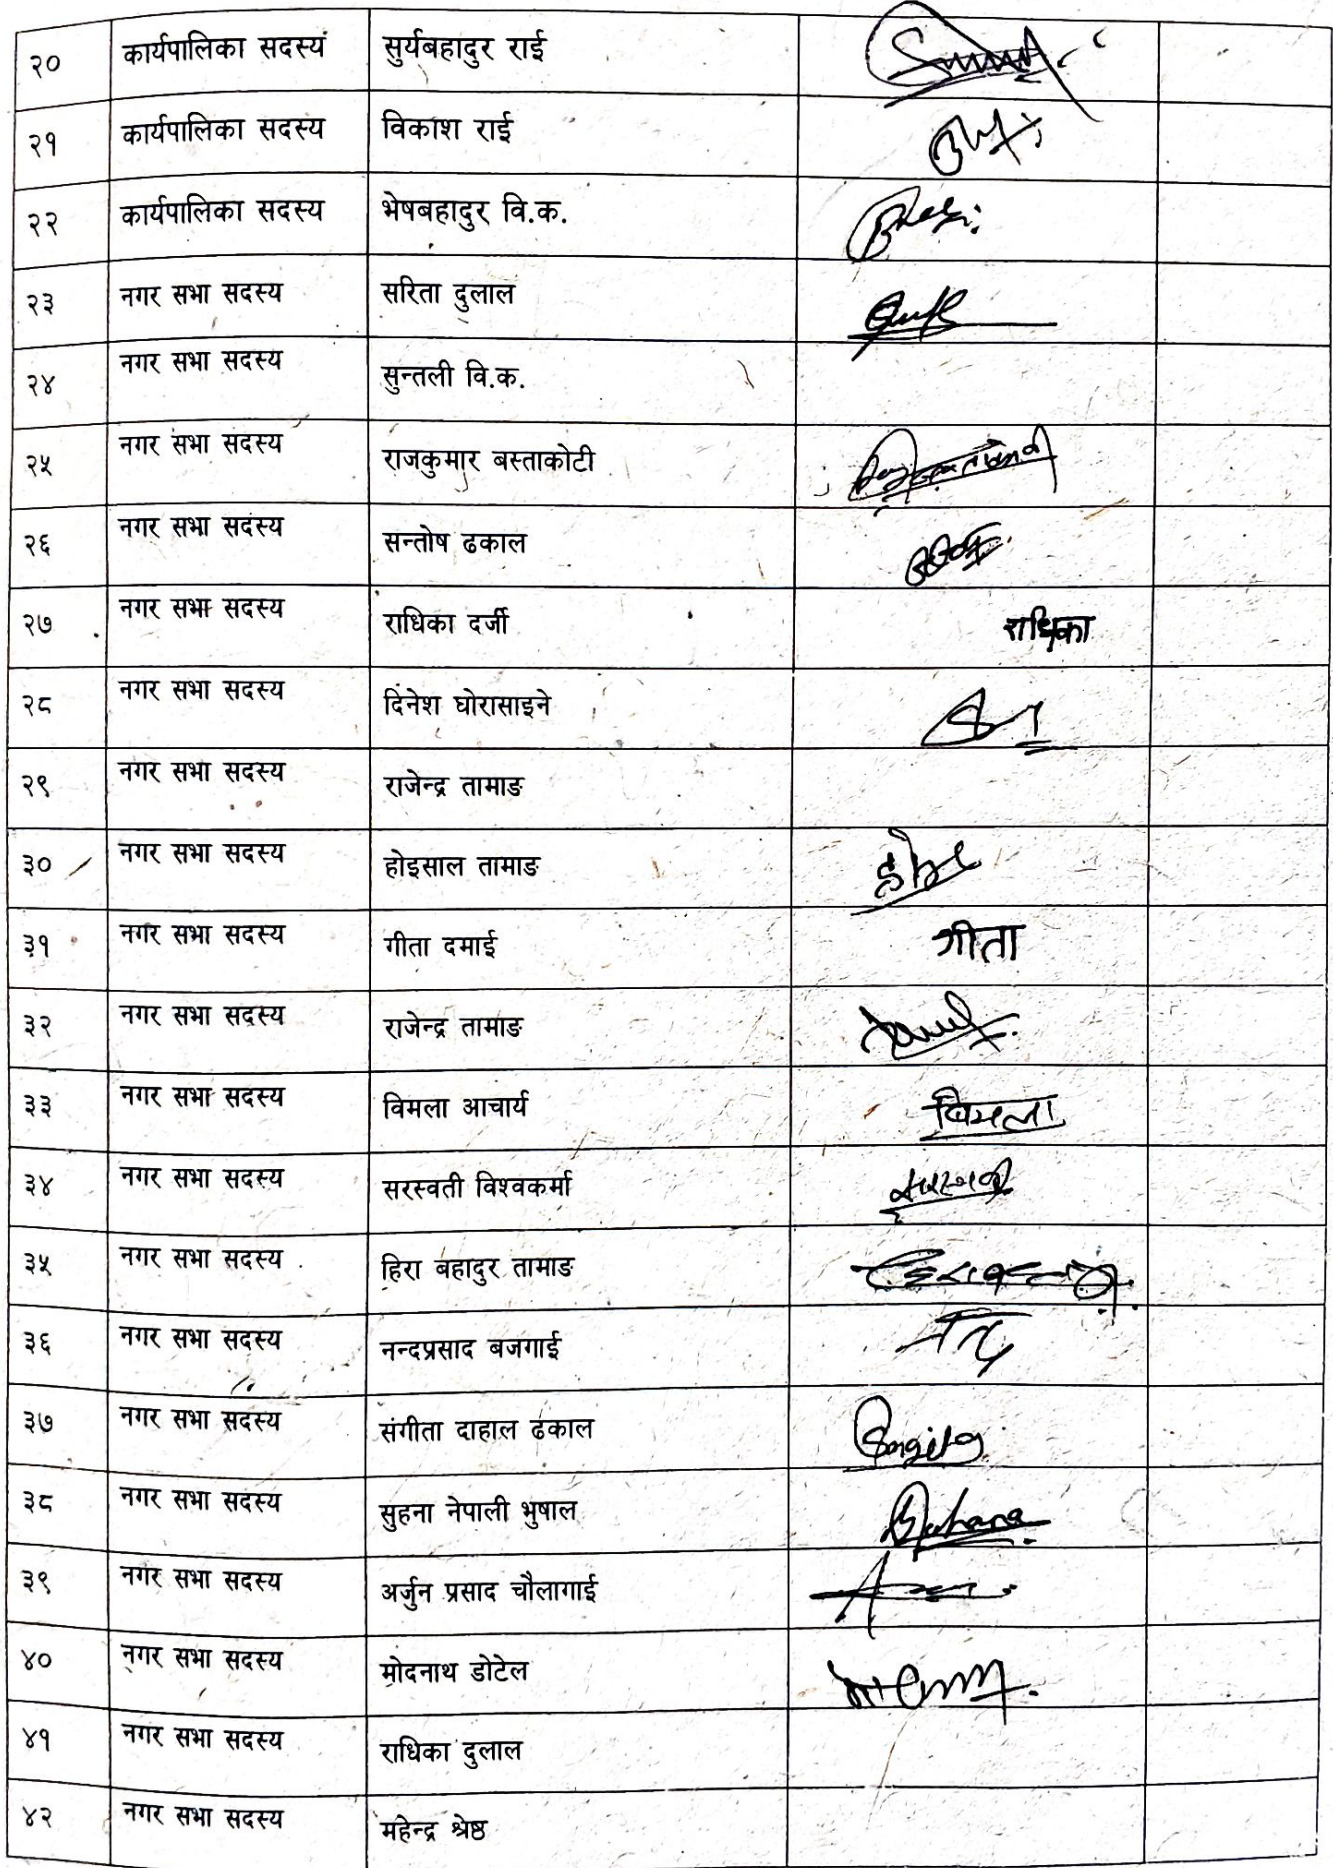 २० कार्यपालिका सदस्य सुर्यबहादुर राई
२१ कार्यपालिका सदस्य विकाश राई
२२ कार्यपालिका सदस्य भेषबहादुर वि.क.
२३ नगर सभा सदस्य सरिता दुलाल
२४ नगर सभा सदस्य सुन्तली वि.क.
२५ नगर सभा सदस्य राजकुमार बस्ताकोटी
२६ नगर सभा सदस्य सन्तोष ढकाल
२७ नगर सभा सदस्य राधिका दर्जी राधिका
२८ नगर सभा सदस्य दिनेश घोरासाइने
२९ नगर सभा सदस्य राजेन्द्र तामाङ
३० नगर सभा सदस्य होइसाल तामाङ
३१ नगर सभा सदस्य गीता दमाई गीता
३२ नगर सभा सदस्य राजेन्द्र तामाङ
३३ नगर सभा सदस्य विमला आचार्य विमला
३४ नगर सभा सदस्य सरस्वती विश्वकर्मा सरस्वती
३५ नगर सभा सदस्य हिरा बहादुर तामाङ
३६ नगर सभा सदस्य नन्दप्रसाद बजगाई
३७ नगर सभा सदस्य संगीता दाहाल ढकाल Sangita
३८ नगर सभा सदस्य सुहना नेपाली भुषाल Suhana
३९ नगर सभा सदस्य अर्जुन प्रसाद चौलागाई
४० नगर सभा सदस्य मोदनाथ डोटेल
४१ नगर सभा सदस्य राधिका दुलाल
४२ नगर सभा सदस्य महेन्द्र श्रेष्ठ